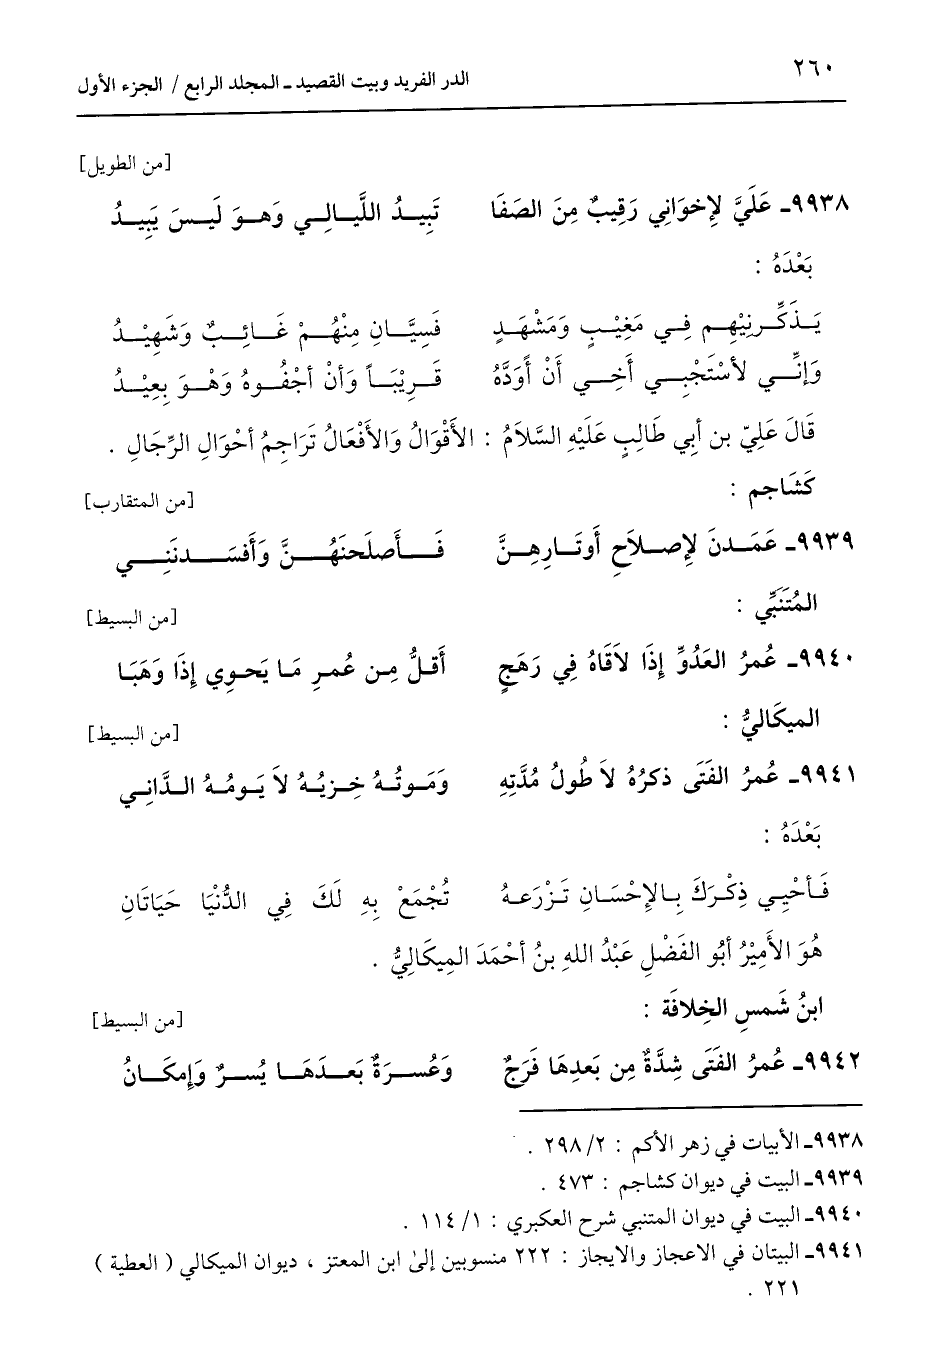 ٢٦٠
الدر الفريد وبيت القصيد ـ المجلد الرابع / الجزء الأول
[من الطويل]
٩٩٣٨ـ عَلَيَّ لإِخوَانِي رَقِيبٌ مِنَ الصَفَا تَبِيدُ اللَّيَالِي وَهوَ لَيسَ يَبِيدُ
بَعْدَهُ :
يَذَكِّرنِيْهِم فِي مَغِيْبٍ وَمَشْهَدٍ فَسِيَّانِ مِنْهُمْ غَائِبٌ وَشَهِيْدُ
وَإِنِّي لأَسْتَحْيِي أَخِي أَنْ أَوَدَّهُ قَرِيْبَاً وَأَنْ أَجْفُوهُ وَهْوَ بِعِيْدُ
قَالَ عَلِيّ بن أبي طَالِبٍ عَلَيْهِ السَّلاَمُ : الأَقْوَالُ وَالأَفْعَالُ تَرَاجِمُ أَحْوَالِ الرِّجَالِ .
كَشَاجم :
[من المتقارب]
٩٩٣٩ـ عَمَدنَ لإِصلاَحِ أَوتَارِهِنَّ فَأَصلَحنَهُنَّ وَأَفسَدنَنِي
المُتَنَبِّي :
[من البسيط]
٩٩٤٠ـ عُمرُ العَدُوِّ إِذَا لاَقَاهُ فِي رَهَجٍ أَقلُّ مِن عُمرِ مَا يَحوِي إِذَا وَهَبَا
الميكَاليُّ :
[من البسيط]
٩٩٤١ـ عُمرُ الفَتَى ذكرُهُ لاَ طُولُ مُدَّتِهِ وَمَوتُهُ خِزيُهُ لاَ يَومُهُ الدَّانِي
بَعْدَهُ :
فَأَحْيِي ذِكْرَكَ بِالإِحْسَانِ تَزْرَعهُ تُجْمَعْ بِهِ لَكَ فِي الدُّنْيَا حَيَاتَانِ
هُوَ الأَمِيْرُ أَبُو الفَضْلِ عَبْدُ اللهِ بنُ أَحْمَدَ المِيكَالِيُّ .
ابنُ شَمسِ الخِلافَة :
[من البسيط]
٩٩٤٢ـ عُمرُ الفَتَى شِدَّةٌ مِن بَعدِهَا فَرَجٌ وَعُسرَةٌ بَعدَهَا يُسرٌ وَإِمكَانُ
٩٩٣٨ـ الأبيات في زهر الأكم : ٢/ ٢٩٨ .
٩٩٣٩ـ البيت في ديوان كشاجم : ٤٧٣ .
٩٩٤٠ـ البيت في ديوان المتنبي شرح العكبري : ١/ ١١٤ .
٩٩٤١ـ البيتان في الاعجاز والايجاز : ٢٢٢ منسوبين إلىٰ ابن المعتز ، ديوان الميكالي ( العطية )
٢٢١ .